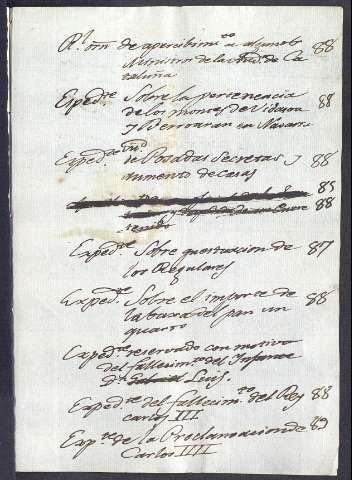 Rl. orn. de apercibimto. a algunos 88
Ministros de la Audª. de Ca
taluña
Expedte. Sobre la pertenencia 88
de los montes de Vidasoa
y Berroaran en Navarra
Expedte. de Posadas Secretas y 88
aumento de Casas
85
88
Expedte. Sobre questuacion de 87
los Regulares
Expedte. Sobre el importe de 88
la baxa del pan un
quarto
Expedte. reservado con motivo
del fallecimto. del Infante
Dn. Luis.
Expedte. del fallecimto. del Rey 88
Carlos III
Expte. de la Proclamacion de 89
Carlos IIII